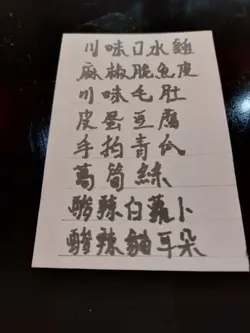 川味口水雞
麻椒脆魚皮
川味毛肚
皮蛋豆腐
手拍青瓜
萵筍絲
酸辣白蘿卜
酸辣豬耳朵